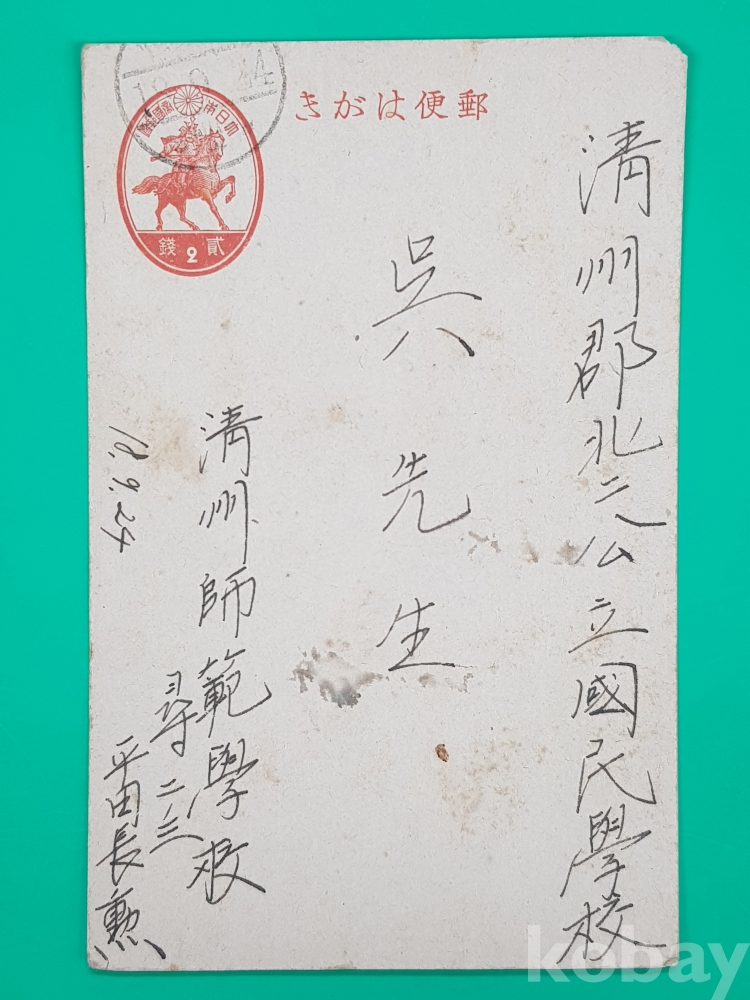 郵便はがき
大日本帝國郵便
貳錢
2
18.9.24
清州郡北二公立國民學校
吳先生
清州師範學校
尋二ノ三
平田長勳
18.9.24
kobay